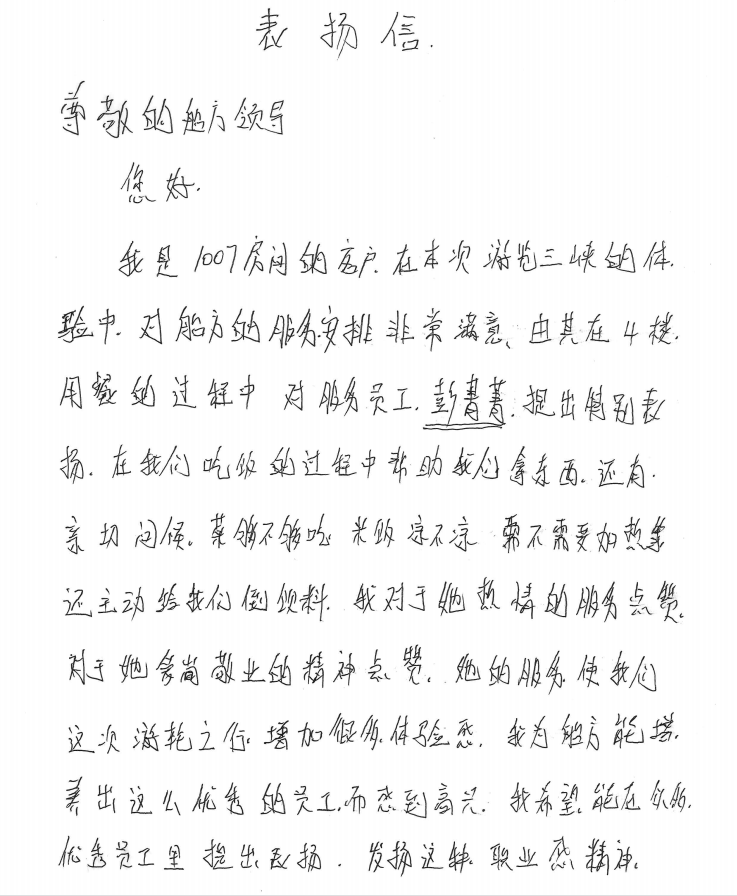 表扬信.
尊敬的船方领导
您好.
我是1007房间的客户.在本次游览三峡的体.
验中.对船方的服务安排非常满意、由其在4楼.
用餐的过程中 对服务员工.彭菁菁.提出特别表
扬.在我们吃饭的过程中帮助我们拿东西.还有.
亲切问候.菜够不够吃 米饭凉不凉 需不需要加热等
还主动给我们倒饮料.我对于她热情的服务点赞.
对于她爱岗敬业的精神点赞.她的服务使我们
这次游轮之行.增加很多体验感.我为船方能培.
养出这么优秀的员工.而感到高兴.我希望.能在众多.
优秀员工里 提出表扬.发扬这种.职业感精神.